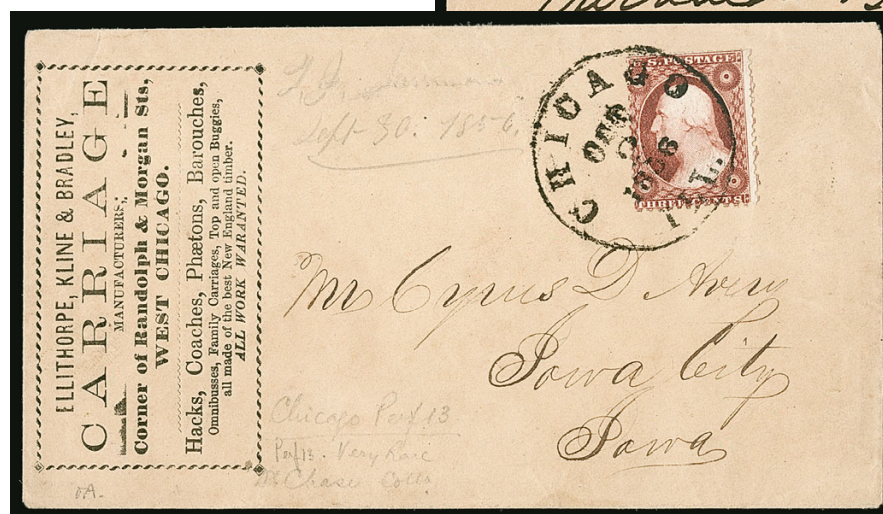 ELLITHORPE, KLINE & BRADLEY,
CARRIAGE
MANUFACTURERS,
Corner of Randolph & Morgan Sts,
WEST CHICAGO.
Hacks, Coaches, Phætons, Barouches,
Omnibusses, Family Carriages, Top and open Buggies,
all made of the best New England timber.
ALL WORK WARANTED.
Sept 30. 1856.
CHICAGO
1856
ILL.
U.S. POSTAGE
THREE CENTS
Mr Cyrus D Avery
Iowa City
Iowa
Chicago Perf. 13
Perf 13. Very Rare
Chase Colln